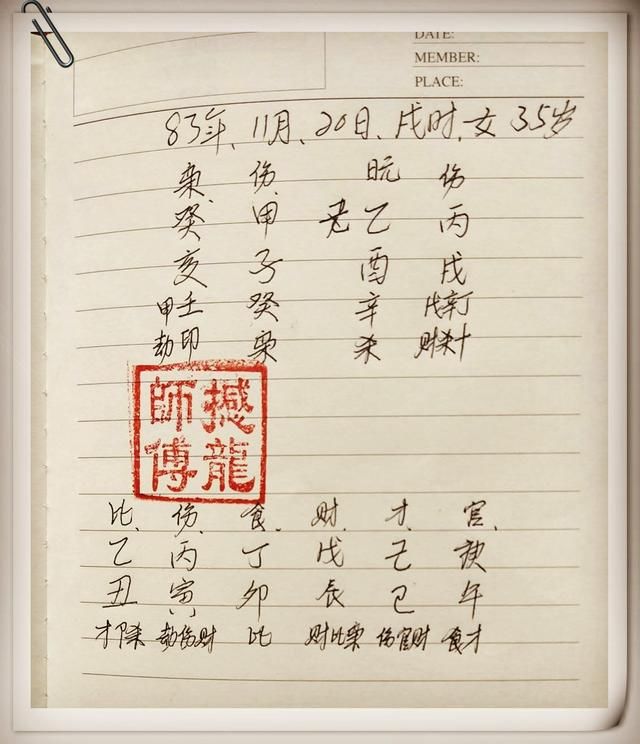 DATE:
MEMBER:
PLACE:
83年、11月、20日、戌时,女 35岁
枭、 伤、 日元 伤
癸 甲 乙 丙
亥 子 酉 戌
甲壬 癸 辛 戊辛丁
劫印 枭 杀 财杀
撼龍
師傅
比、 伤、 食、 财、 才、 官、
乙 丙 丁 戊 己 庚
丑 寅 卯 辰 巳 午
才P杀 劫伤财 比 财比枭 伤官财 食才